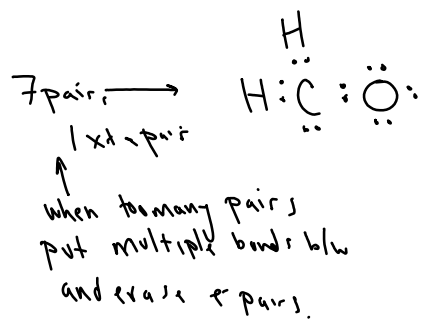 H
7 pairs → H : C : O :
1 xtra pair
when too many pairs
put multiple bonds b/w
and erase e⁻ pairs.